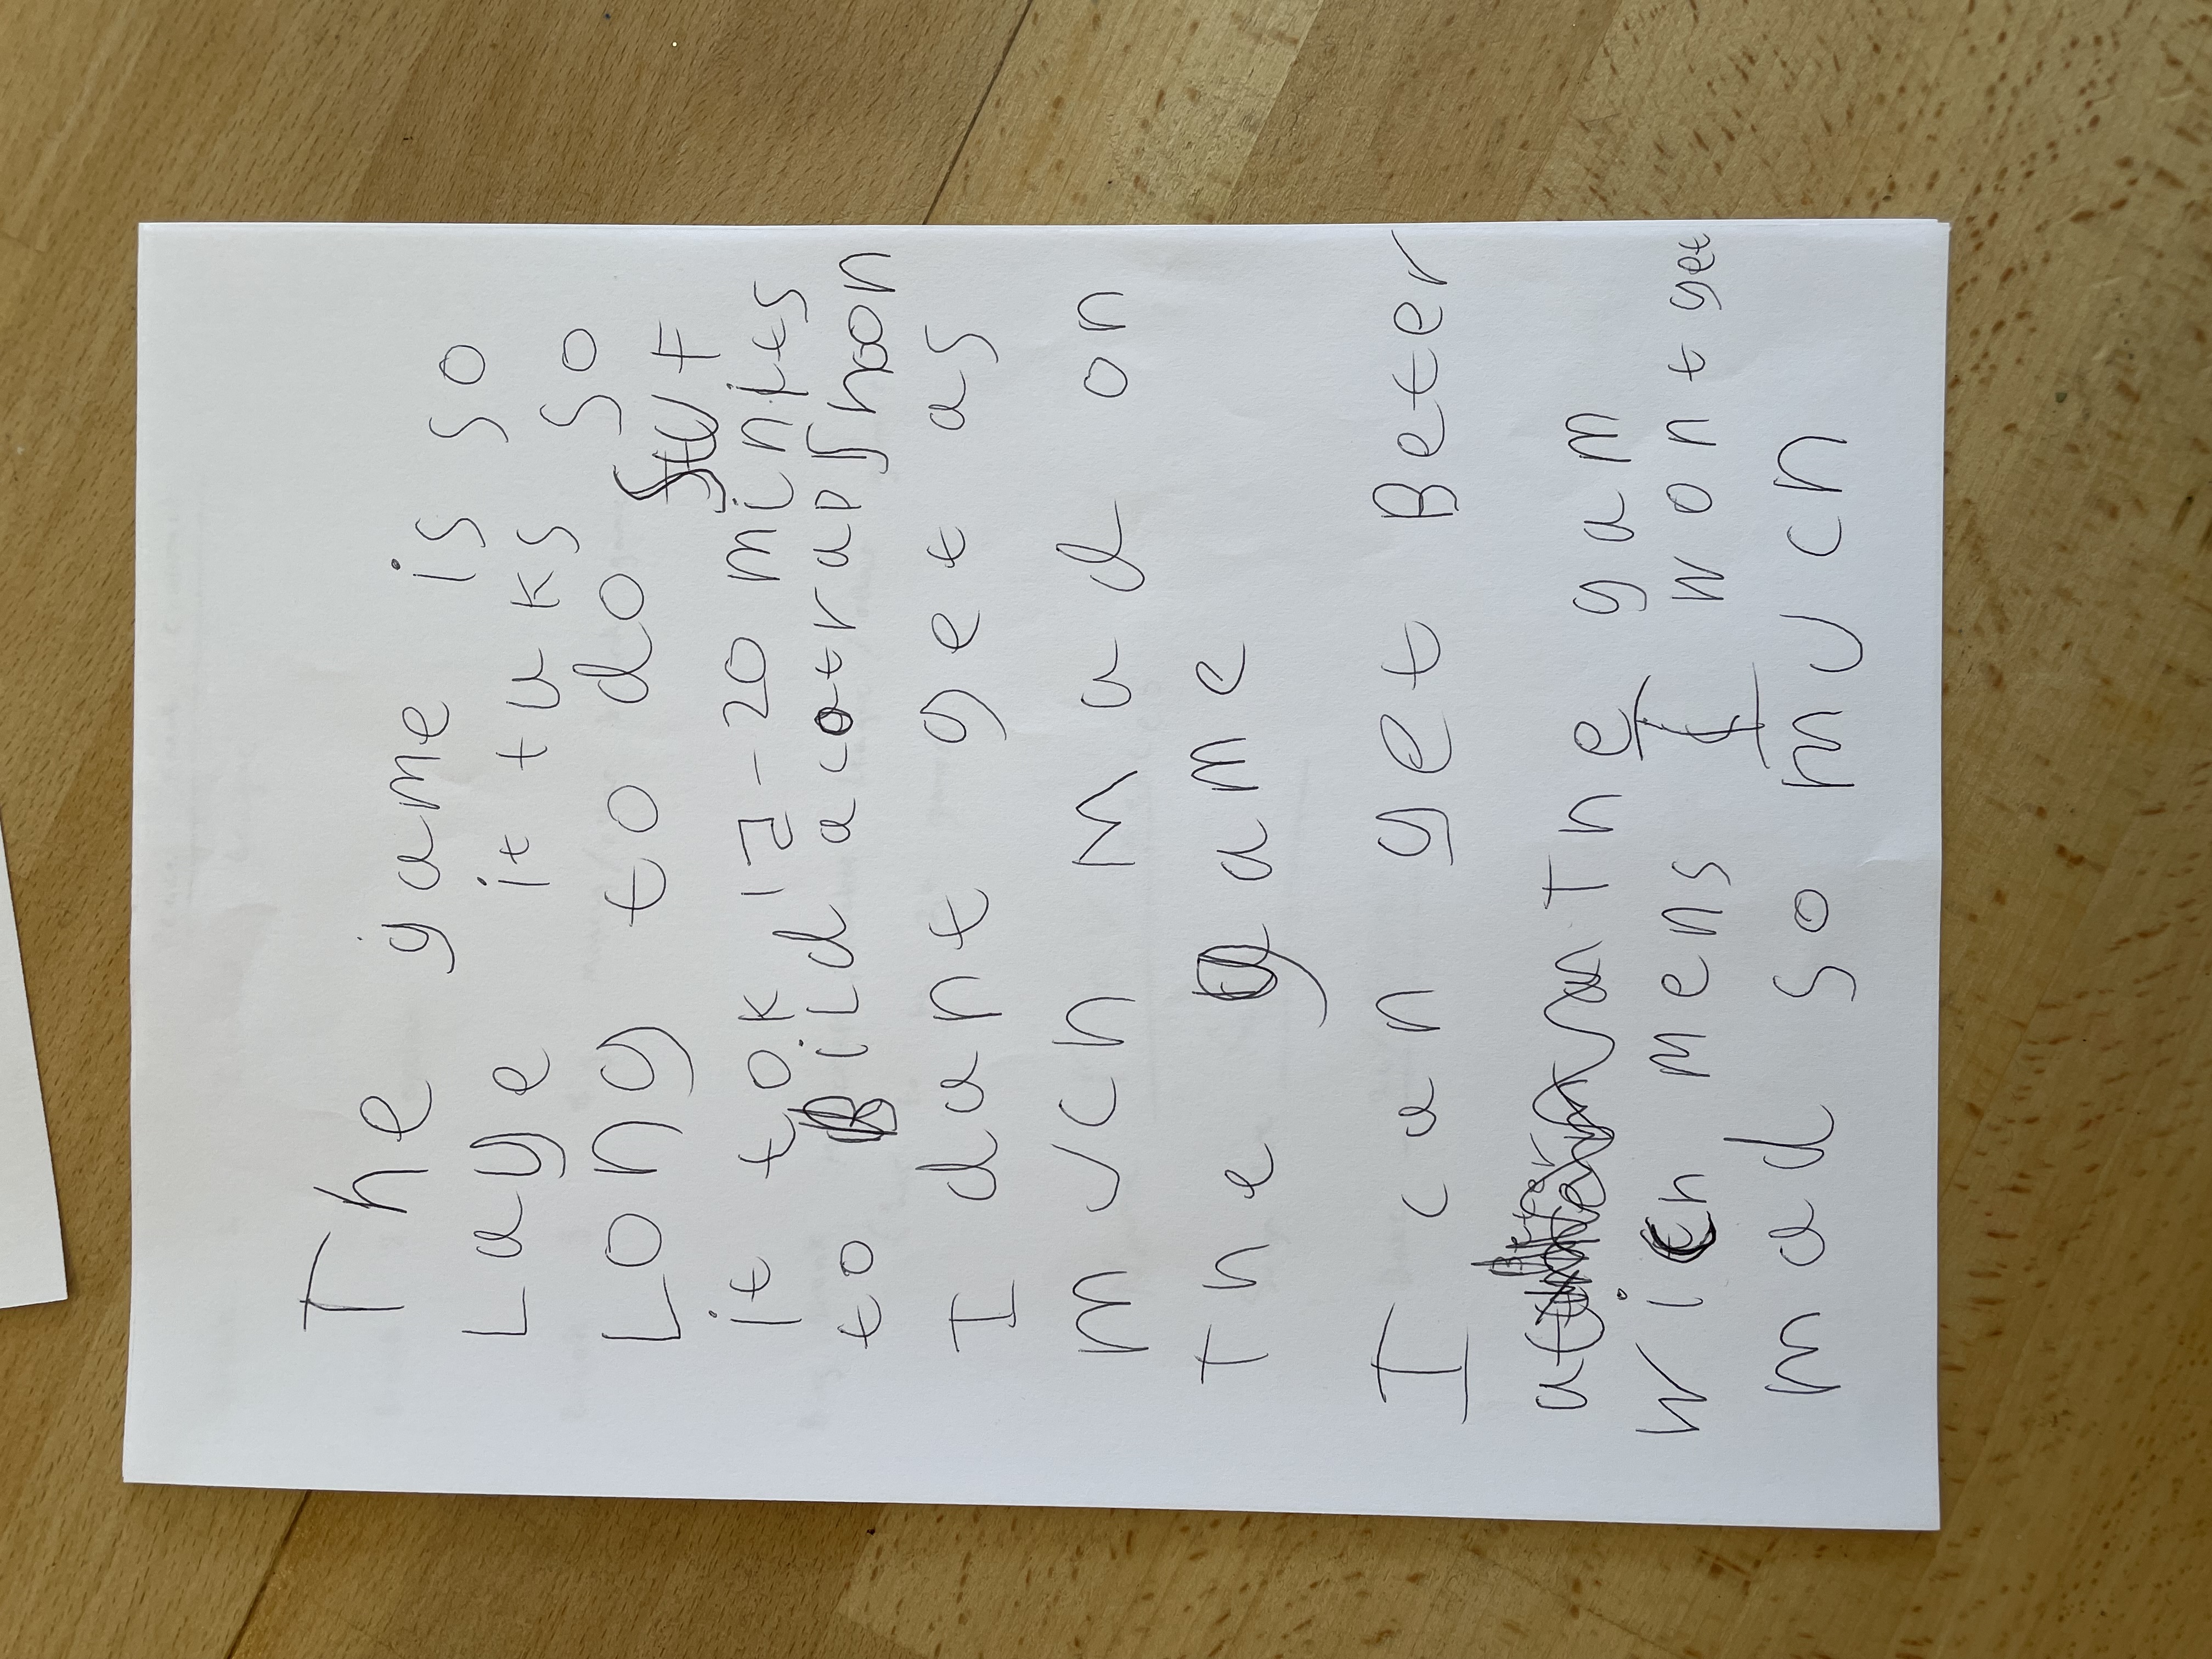 The game is so
Laye it taks so
Long to do suf
it tok 15-20 minits
to Bild a cotrapshoon
I dant get as
much mad on
the game
I can get Beter
at the gam
wich mens I wont get
mad so much